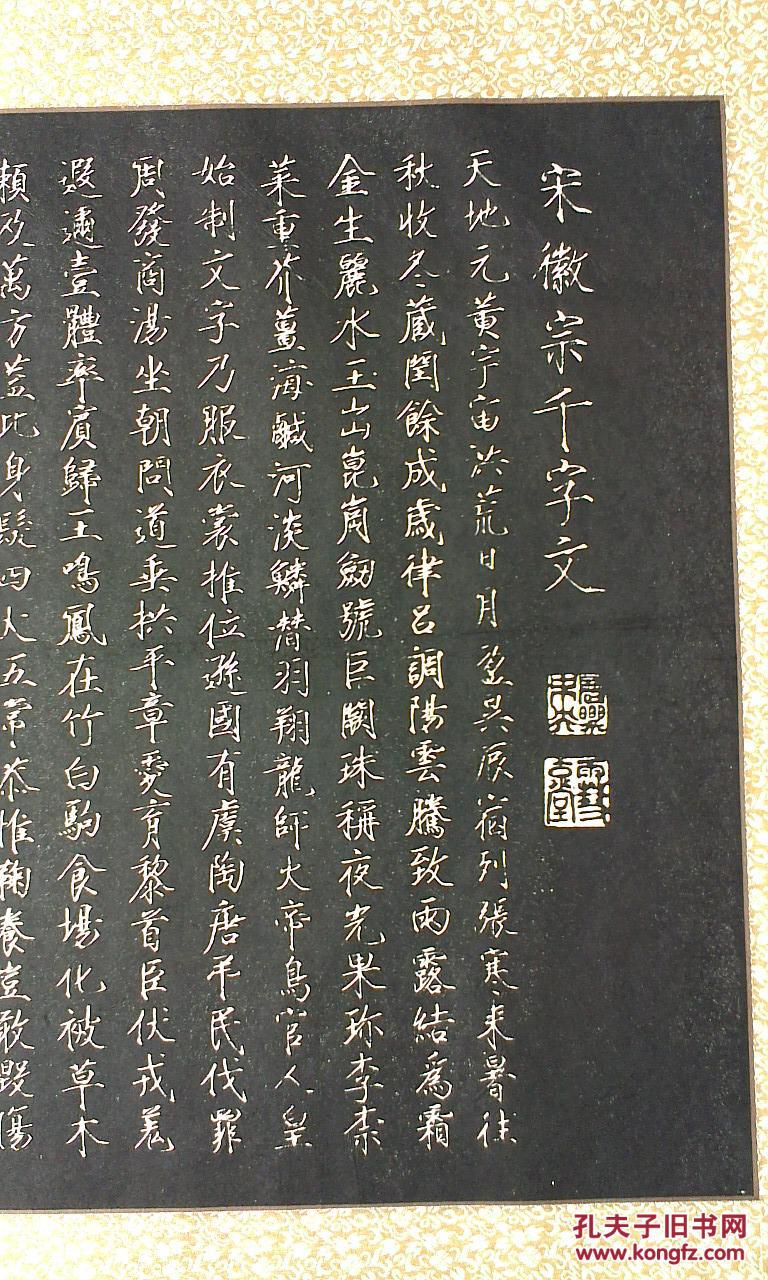 宋徽宗千字文
天地元黄宇宙洪荒日月盈昃辰宿列張寒来暑往
秋收冬蔵閏餘成歳律吕調陽雲騰致雨露結爲霜
金生麗水玉出崑岡劔號巨闕珠稱夜光果珎李柰
菜重芥薑海鹹河淡鱗潜羽翔龍師火帝鳥官人皇
始制文字乃服衣裳推位遜國有虞陶唐弔民伐罪
周發商湯坐朝問道垂拱平章愛育黎首臣伏戎羌
遐邇壹體率賓歸王鳴鳳在竹白駒食場化被草木
頼及萬方蓋此身髪四大五常恭惟鞠養豈敢毀傷
孔夫子旧书网
www.kongfz.com